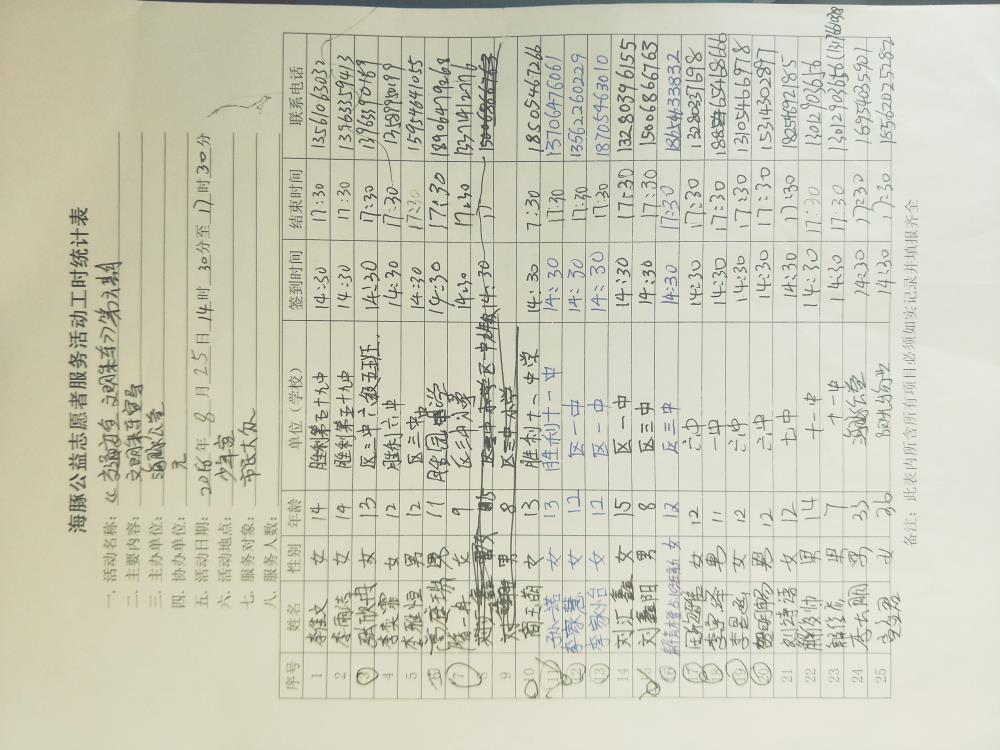 海豚公益志愿者服务活动工时统计表
一、活动名称：《交通四台 文明乘车》第六期
二、主要内容：文明乘车宣导
三、主办单位：海豚公益
四、协办单位：元
五、活动日期：2016年8月25日14时30分至17时30分
六、活动地点：少年宫
七、服务对象：市民大众
八、服务人数：
序号 姓名 性别 年龄 单位（学校） 签到时间 结束时间 联系电话
1 女 14 胜利第五十九中 14:30 17:30 13561063032
2 李雨洁 女 14 胜利第五十九中 14:30 17:30 13963359413
3 女 13 区三中六级五班 14:30 17:30
4 李奕霏 女 12 胜利六中 14:30 17:30
5 李雅恒 男 12 区三中 14:30 17:30 15954641055
6 男 11 14:30 17:30 18906479268
7 女 9 14:30 17:30
8 14:30
9 男 8 区三中小学
10 商玉萌 女 13 胜利十一中学 14:30 7:30 18505467266
11 孙一诺 女 13 胜利十一中 14:30 17:30 13706476061
12 李家慧 女 12 区一中 14:30 17:30 13562260229
13 李家怡 女 12 区一中 14:30 17:30 18705463010
14 刘江鑫 女 15 区一中 14:30 17:30 13280396155
15 刘鑫阳 男 8 区三中 14:30 17:30 15006866763
16 女 12 区三中 14:30 17:30 18654633832
17 女 12 六中 14:30 17:30
18 李宇绛 男 11 一中 14:30 17:30
19 女 12 六中 14:30 17:30 13105466978
20 男 12 六中 14:30 17:30 15314302897
21 刘诗语 女 12 七中 14:30 17:30 18254692785
22 解俊帅 男 14 十一中 14:30 17:30 13012903656
23 男 7 十一中 14:30 17:30
24 李大鹏 男 33 海豚公益 14:30 17:30 16954035901
25 女 36 14:30 17:30 18562025282
备注：此表内所含所有项目必须如实记录并填报齐全